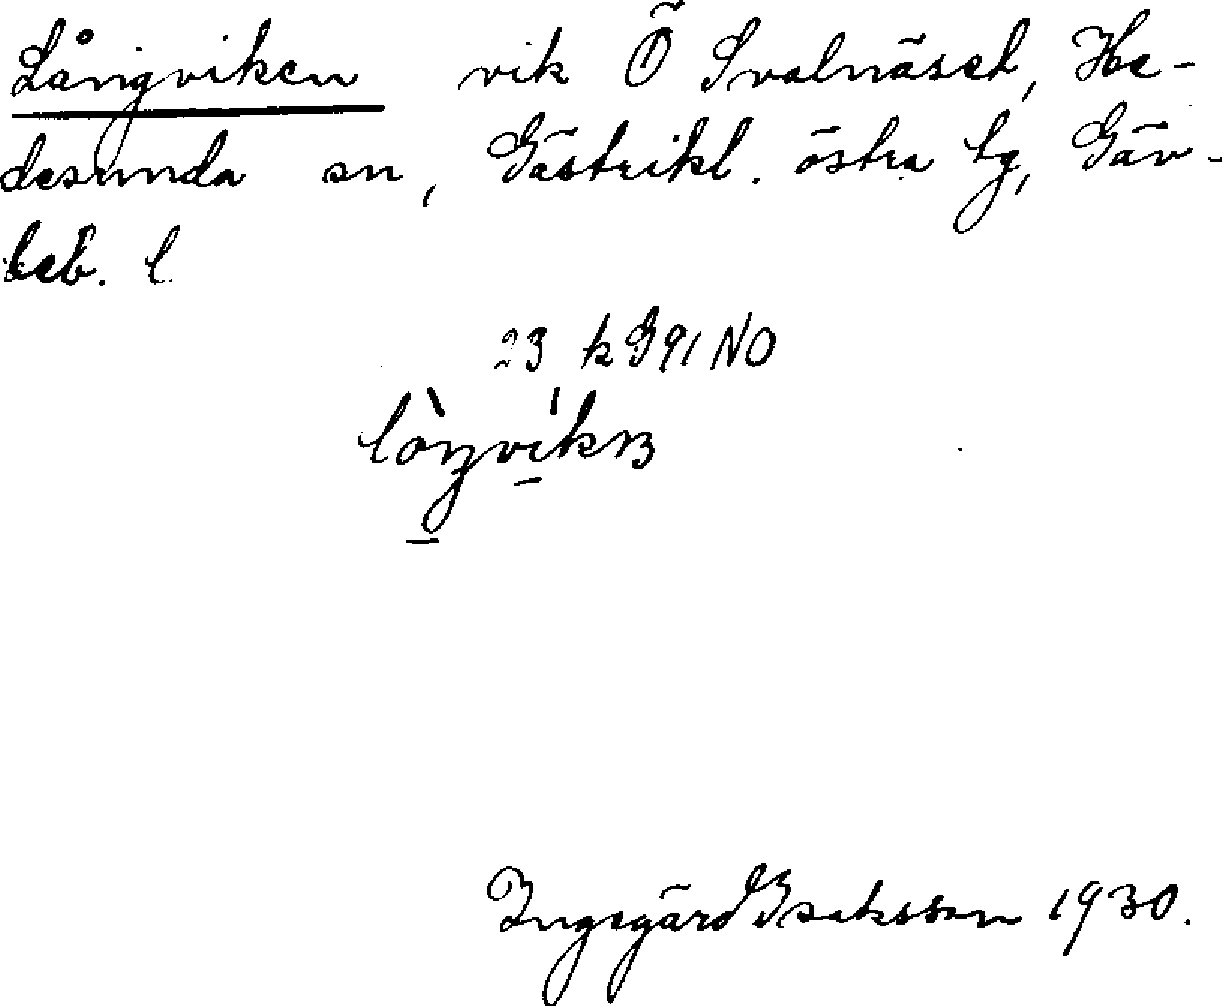 Långviken vik Ö Svalnäset, He-
desunda sn, Gästrikl. östra tg, Gäv-
leb. l
23 k G91 NO
Ingegärd Isaksson 1930.